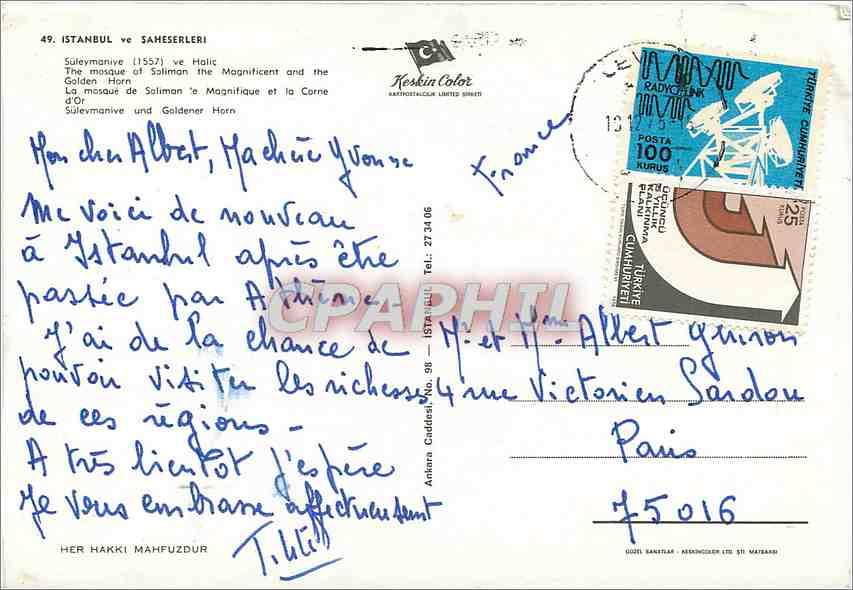 49. ISTANBUL ve ŞAHESERLERİ
Süleymaniye (1557) ve Haliç
The mosque of Soliman the Magnificent and the
Golden Horn
La mosqué de Soliman le Magnifique et la Corne
d'Or
Süleymaniye und Goldener Horn
Keskin Color
KARTPOSTALCILIK LIMITED ŞİRKETİ
RADYOLİNK
POSTA
100
KURUŞ
TÜRKİYE CUMHURİYETİ
ÜÇÜNCÜ
5 YILLIK
KALKINMA
PLANI
POSTA
25
KURUŞ
TÜRKİYE
CUMHURİYETİ
France
Mon cher Albert, Ma chère Yvonne
Me voici de nouveau
à Istanbul après être
passée par Athènes -
J'ai de la chance de
pouvoir visiter les richesses
de ces régions -
A très bientôt j'espère
Je vous embrasse affectueusement
Ankara Caddesi. No. 98 — İSTANBUL Tel.: 27 34 06
Mr et Mme Albert
4 rue Victorien Sardou
Paris
75016
HER HAKKI MAHFUZDUR
GÜZEL SANATLAR - KESKİNCOLOR LTD. ŞTİ. MATBAASI
CPAPHIL.COM